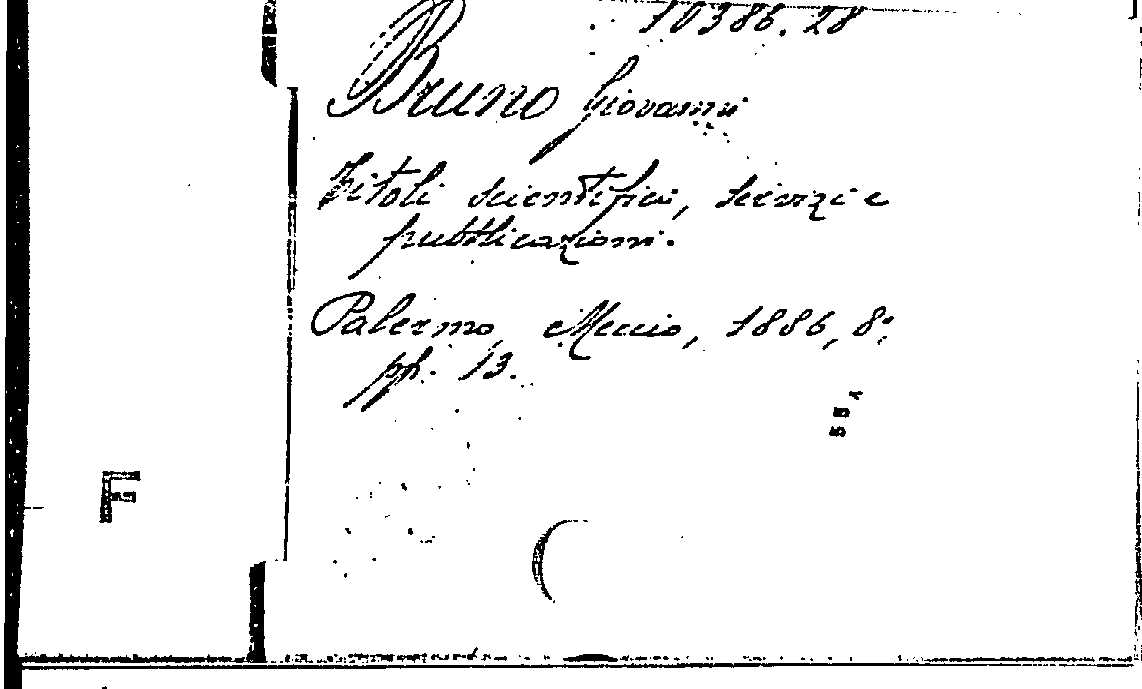 10386.28
Bruno Giovanni
Titoli scientifici, servizi e
pubblicazioni.
Palermo, Meccio, 1886, 8º
pp. 13.
F